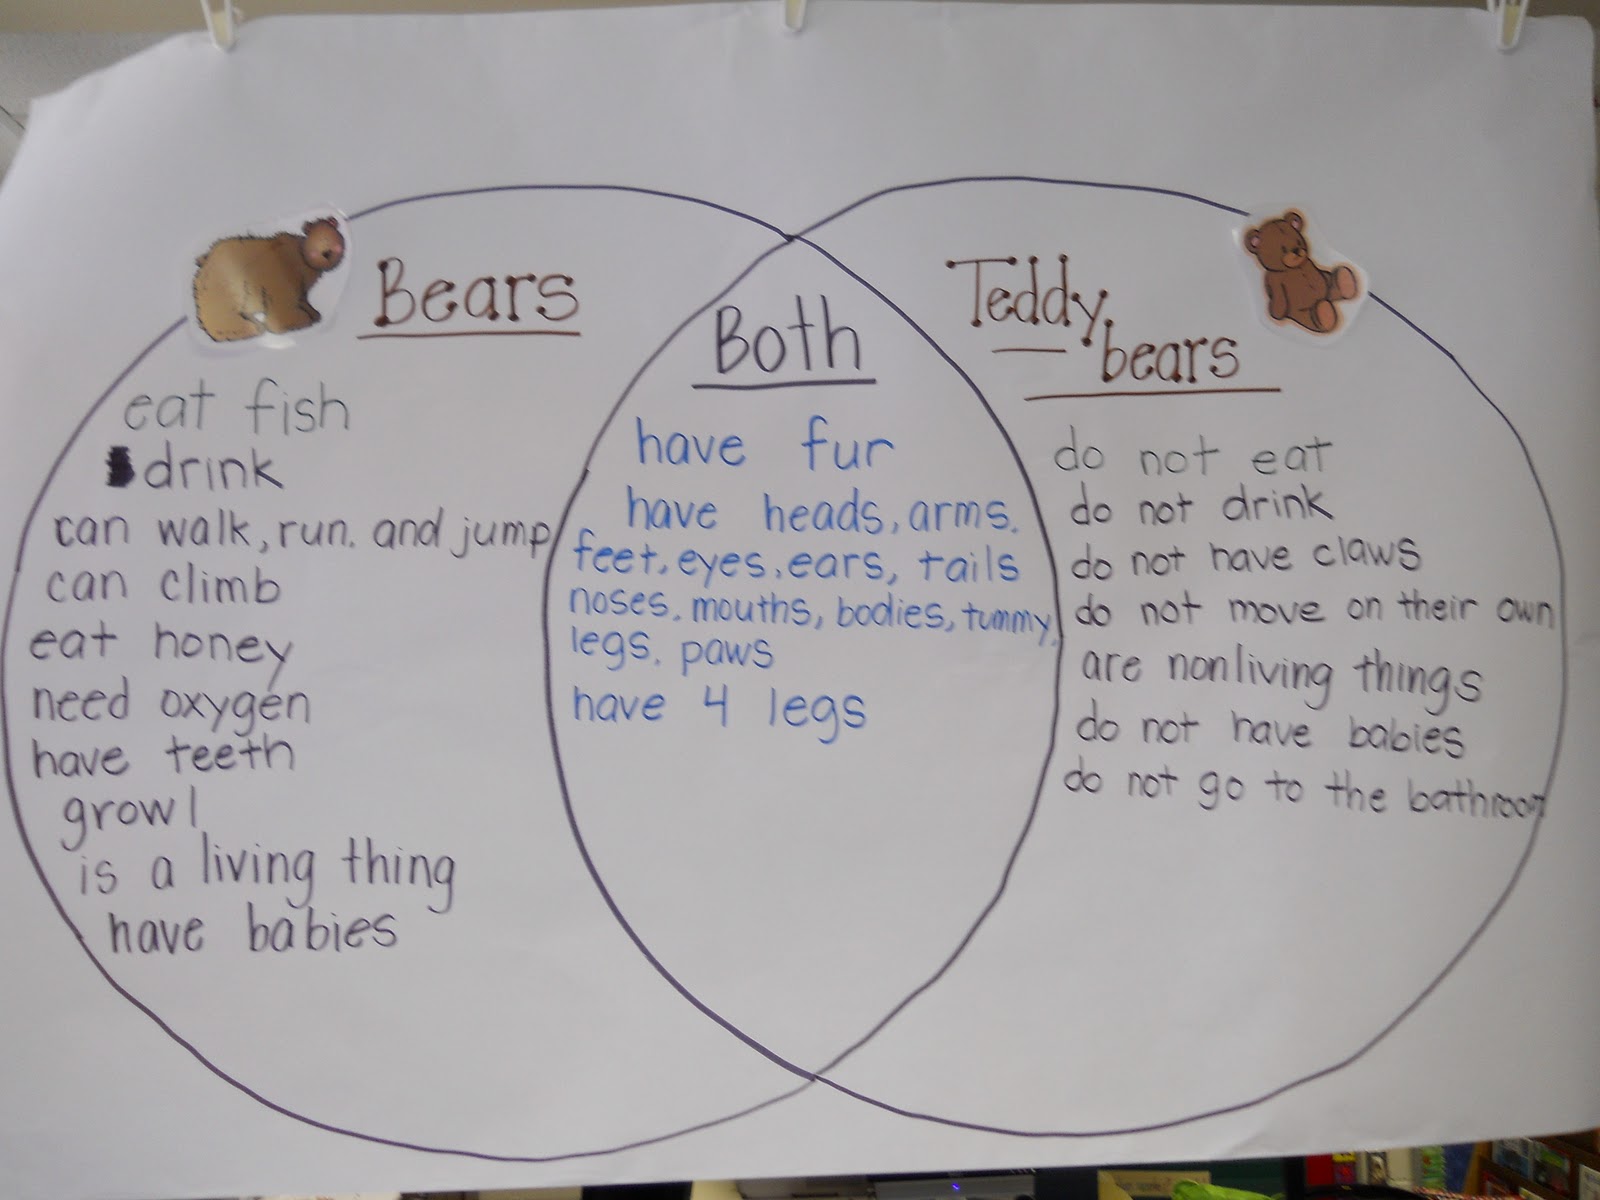 Bears
eat fish
drink
can walk, run. and jump
can climb
eat honey
need oxygen
have teeth
growl
is a living thing
have babies
Both
have fur
have heads, arms.
feet, eyes, ears, tails
noses, mouths, bodies, tummy,
legs, paws
have 4 legs
Teddy
bears
do not eat
do not drink
do not have claws
do not move on their own
are nonliving things
do not have babies
do not go to the bathroom